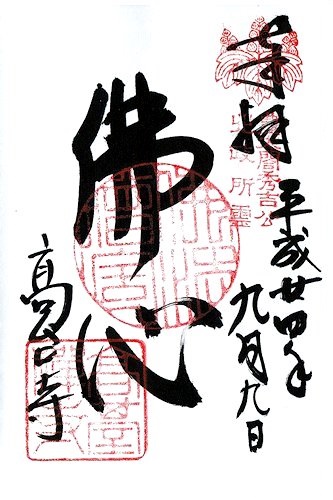 奉拝
太閤秀吉公
北政所靈
平成廿四年
九月九日
佛心
高台寺